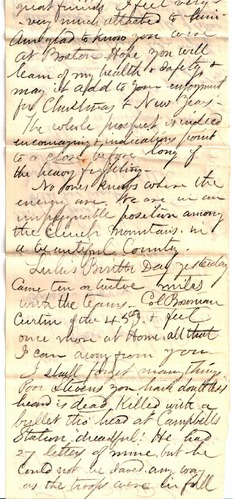 great friends. I feel very
very much attached to him
Am glad to know you were
at Boston Hope you will
learn of my health & safety &
may it add to your enjoyment
for Christmas & New Years.
The whole prospect is indeed
encouraging & indications point
to a close before long of
the heavy fighting.
No one knows where the
enemy are. We are in an
impregnable position among
the Clinch Mountains. in
a beautiful County.
Lulu's Birth Day yesterday
Came ten or twelve miles
with the teams. Col Bowman
Curtin of the 45th & felt
once more at Home, all that
I can away from you
I shall forget many things
Poor Stevens you have doubtless
heard is dead. Killed with a
bullet thro' head at Campbells
Station, dreadful! He had
27 letters of mine, but he
could not be saved any way
as the troops were in full